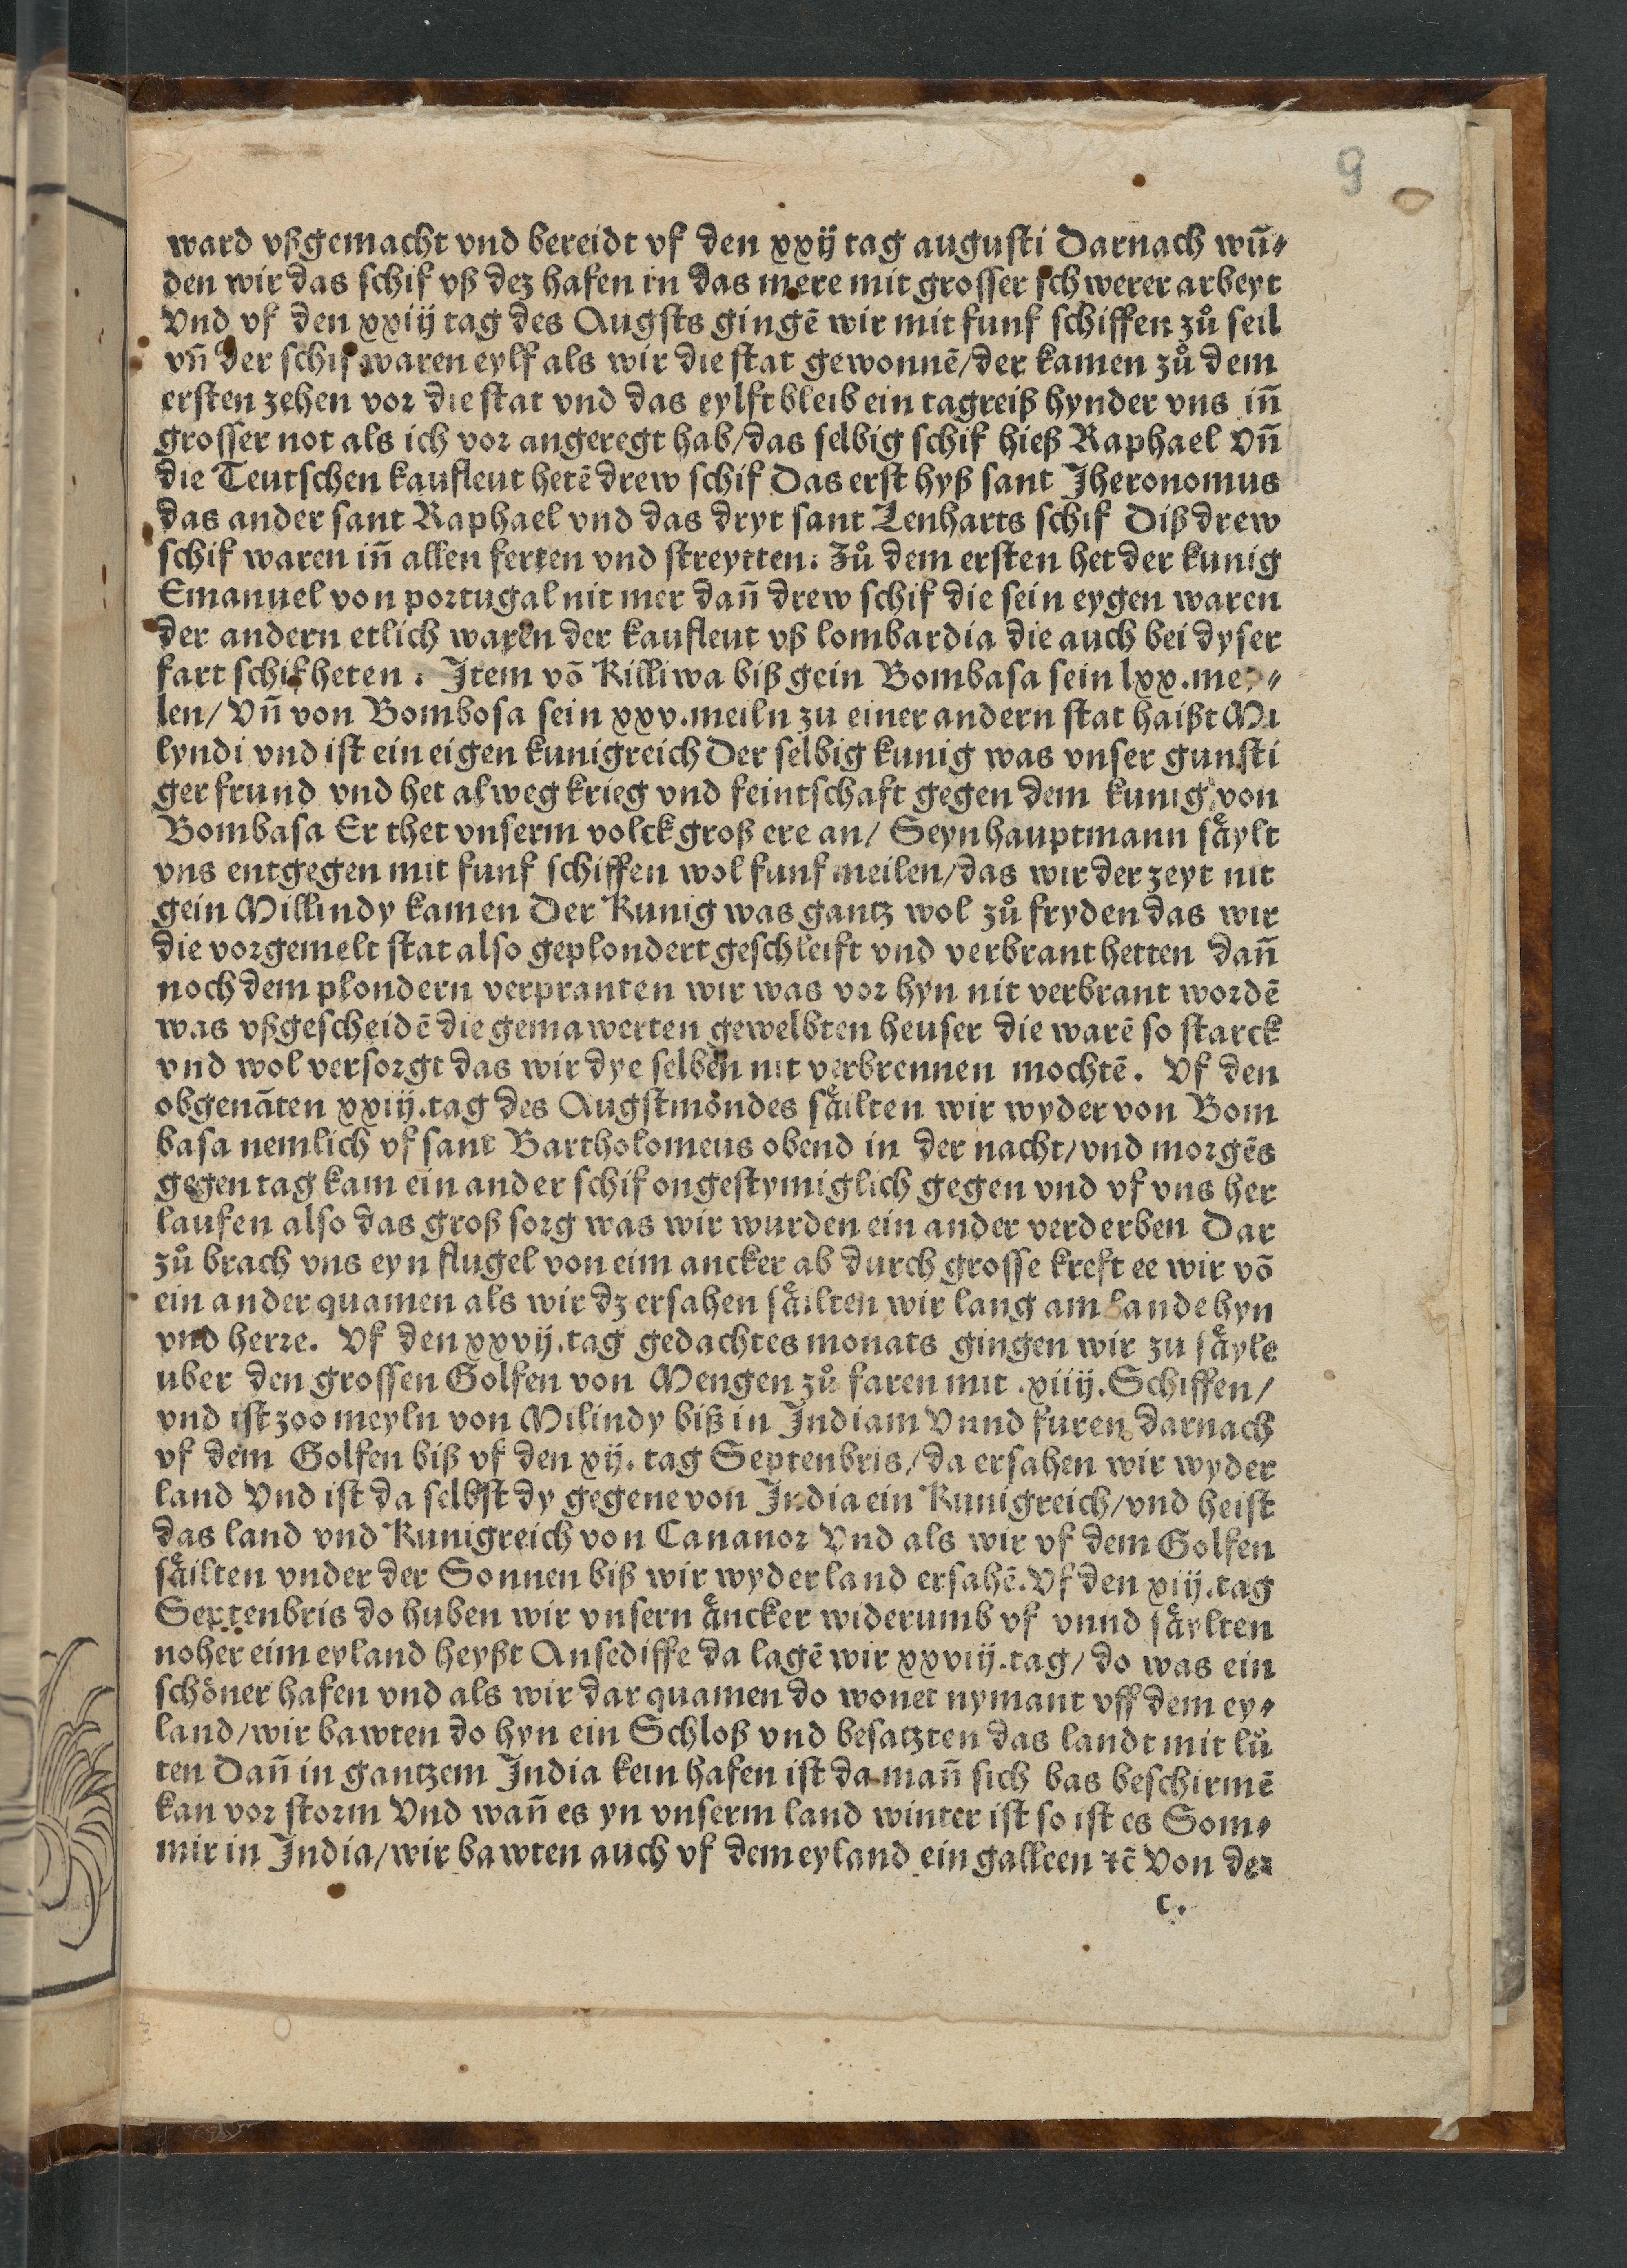 9
ward vßgemacht vnd bereidt vf den xxij tag augusti Darnach wū⸗
den wir das schif vß dez hafen in das mere mit grosser schwerer arbeyt
Vnd vf den xxiij tag des Augsts gingē wir mit funf schiffen zů seil
vn̄ der schif waren eylf als wir die stat gewonnē/der kamen zů dem
ersten zehen vor die stat vnd das eylft bleib ein tagreiß hynder vns in̄
grosser not als ich vor angeregt hab/das selbig schif hieß Raphael Vn̄
die Teutschen kaufleut hetē drew schif Das erst hyß sant Jheronomus
das ander sant Raphael vnd das dryt sant Lenharts schif Diß drew
schif waren in̄ allen ferten vnd streytten: Zů dem ersten het der kunig
Emanuel von portugal nit mer dan̄ drew schif die sein eygen waren
der andern etlich waren der kaufleut vß lombardia die auch bei dyser
fart schif heten. Item vō Killiwa biß gein Bombasa sein lxx.mey⸗
len/ Vn̄ von Bombosa sein xxv.meiln zu einer andern stat haißt Mi
lyndi vnd ist ein eigen kunigreich Der selbig kunig was vnser gunsti
ger frund vnd het alweg krieg vnd feintschaft gegen dem kunig von
Bombasa Er thet vnserm volck groß ere an/ Seyn hauptmann såylt
vns entgegen mit funf schiffen wol funf meilen/das wir der zeyt nit
gein Millindy kamen Der Kunig was gantz wol zů fryden das wir
die vorgemelt stat also geplondert geschleift vnd verbrant hetten dan̄
noch dem plondern verpranten wir was vor hyn nit verbrant wordē
was vßgescheidē die gemawerten gewelbten heuser die warē so starck
vnd wol versorgt das wir dye selben nit verbrennen mochtē. Vf den
obgenāten xxiij.tag des Augstmondes såilten wir wyder von Bom
basa nemlich vf sant Bartholomeus obend in der nacht/vnd morgēs
gegen tag kam ein ander schif ongestymiglich gegen vnd vf vns her
laufen also das groß sorg was wir wurden ein ander verderben Dar
zů brach vns eyn flugel von eim ancker ab durch grosse kreft ee wir vō
ein ander quamen als wir dz ersahen såilten wir lang am lande hyn
vnd herre. Vf den xxvij.tag gedachtes monats gingen wir zu såyle
uber den grossen Golfen von Mengen zů faren mit .xiiij. Schiffen/
vnd ist zoo meyln von Milindy biß in Indiam Vnnd furen darnach
vf dem Golfen biß vf den xij. tag Septenbris/da ersahen wir wyder
land Vnd ist da selbst dy gegene von India ein Kunigreich/vnd heist
das land vnd Kunigreich von Cananor Vnd als wir vf dem Golfen
såilten vnder der Sonnen biß wir wyder land ersahē. Vf den xiij.tag
Septenbris do huben wir vnsern åncker widerumb vf vnnd såylten
noher eim eyland heyßt Ansediffe da lagē wir xxviij.tag/ do was ein
schöner hafen vnd als wir dar quamen do wonet nymant vff dem ey⸗
land/wir bawten do hyn ein Schloß vnd besatzten das landt mit lü
ten Dan̄ in gantzem India kein hafen ist da man̄ sich bas beschirmē
kan vor storm Vnd wan̄ es yn vnserm land winter ist so ist es Som⸗
mir in India/wir bawten auch vf dem eyland ein galleen ⁊c̄ Von der
c.